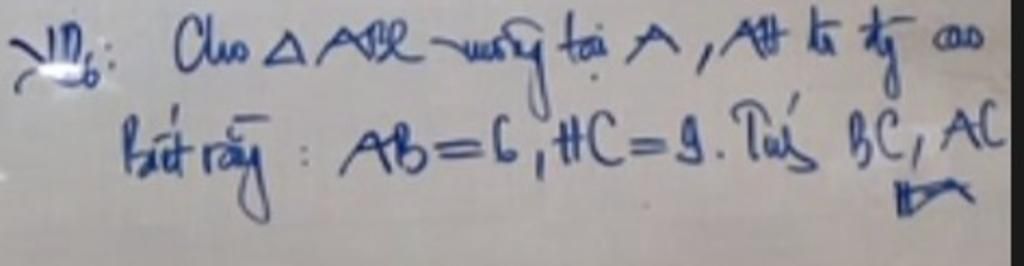 VD6: Cho △ABC vuông tại A, AH là đg cao
Biết rằng: AB=6, HC=9. Tính BC, AC